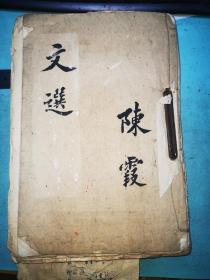 文選
陳霞